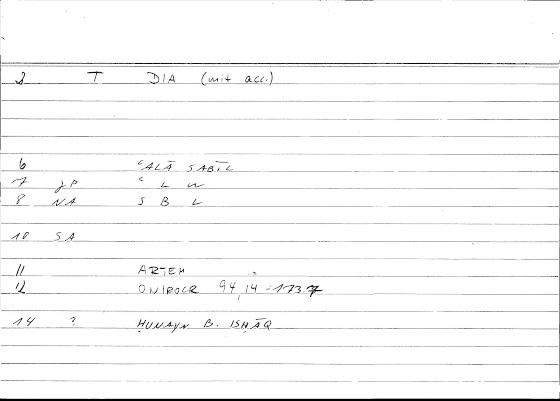 2 T DIA (mit acc.)
6 ʿALĀ SABĪL
7 JP ʿ L W
8 NA S B L
10 SA
11 ARTEM
12 ONIROCR 94,14 = 173,7
14 ? ḤUNAYN B. ISḤĀQ